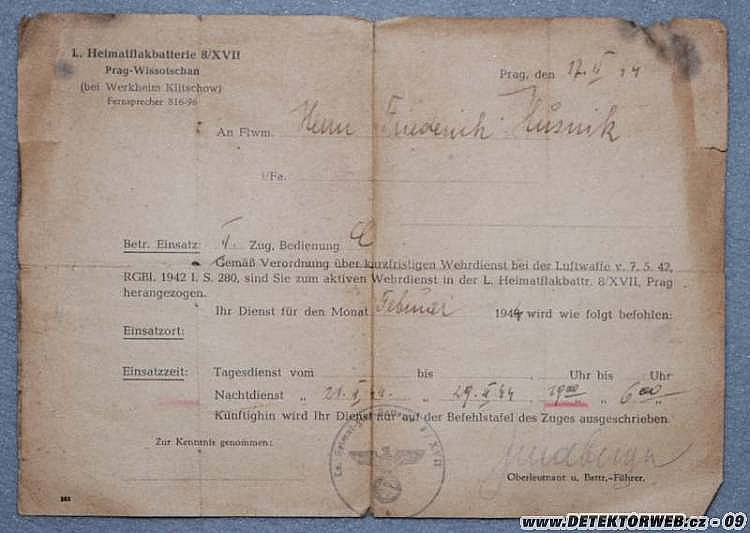 L. Heimatflakbatterie 8/XVII
Prag-Wissotschan
(bei Werkheim Klitschow)
Fernsprecher 816-96
Prag, den 17. II 44
An Flwm. Herrn Friederich Husnik
i/Fa.
Betr. Einsatz: I. Zug, Bedienung
Gemäß Verordnung über kurzfristigen Wehrdienst bei der Luftwaffe v. 7. 5. 42,
RGBl. 1942 I. S. 280, sind Sie zum aktiven Wehrdienst in der L. Heimatflakbattr. 8/XVII, Prag
herangezogen.
Ihr Dienst für den Monat Februar 1944 wird wie folgt befohlen:
Einsatzort:
Einsatzzeit: Tagesdienst vom bis Uhr bis Uhr
Nachtdienst „ 21. II 44 „ 29. II 44 19 00 „ 6 00 „
Künftighin wird Ihr Dienst nur auf der Befehlstafel des Zuges ausgeschrieben.
Zur Kenntnis genommen:
Oberleutnant u. Battr.-Führer.
www.DETEKTORWEB.cz - 09